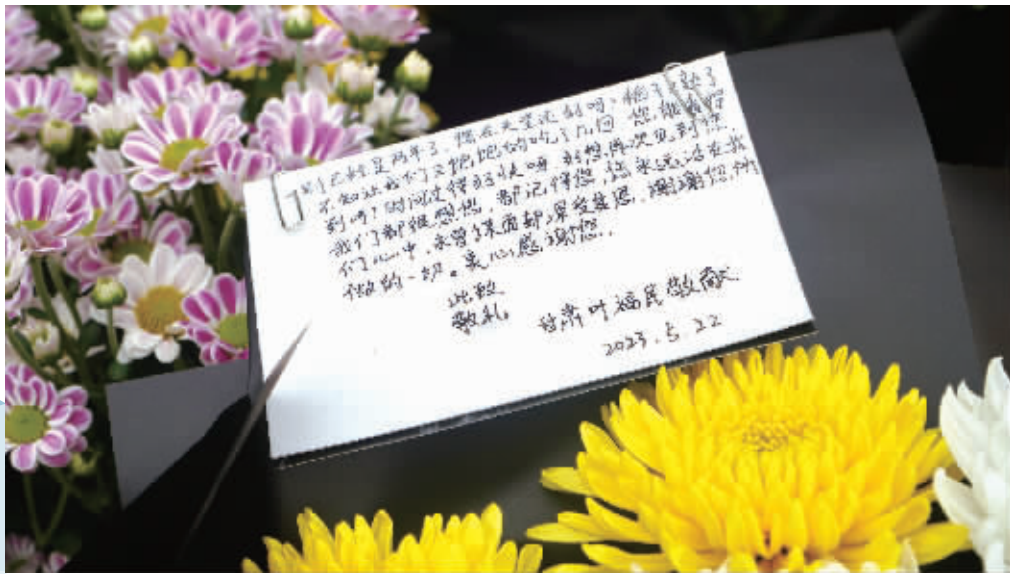 别已经是两年了,您在天堂还好吗,稻子熟了
不知让我们又把把的吃了几回 您能看得
到吗?时间过得好快呀 好想再次见到您,
我们都很想您,都记得您,您永远活在我
们心中,未曾谋面却深受恩惠,谢谢您所
做的一切。衷心感谢您.
此致
敬礼
甘肃叶福民敬献
2023.5.22